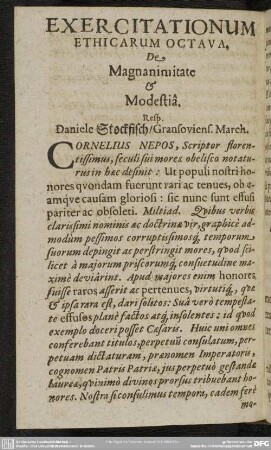 EXERCITATIONUM
ETHICARUM OCTAVA,
De
Magnanimitate
&
Modestiâ.
Resp.
Daniele Stockfisch/Gransoviens. March.
CORNELIUS NEPOS, Scriptor floren-
tissimus, seculi sui mores obelisco notatu-
rus in hæc desinit: Ut populi nostri ho-
nores qvondam fuerunt rari ac tenues, ob e-
amqve causam gloriosi: sic nunc sunt effusi
pariter ac obsoleti. Miltiad. Qvibus verbis
clarissimi nominis ac doctrinæ vir, graphicè ad-
modùm pessimos corruptissimosq; temporum
suorum depingit ac perstringit mores, qvod sci-
licet à majorum priscorumq; consuetudine ma-
ximè deviârint. Apud majores enim honores
fuisse raros asserit ac pertenues, virtutiq;, qvæ
& ipsa rara est, dari solitos: Suâ verò tempesta-
te effusos planè factos atq; insolentes: id qvod
exemplo doceri posset Cæsaris. Huic uni omnes
conferebant titulos, perpetuũ consulatum, per-
petuam dictaturam, prænomen Imperatoris,
cognomen Patris Patriæ, jus perpetuò gestandæ
laureæ, qvinimò divinos prorsus tribuebant ho-
nores. Nostra si consulimus tempora, eadem ferè